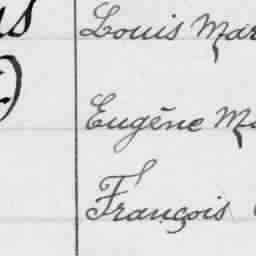 Louis Mar
Eugène Ma
François